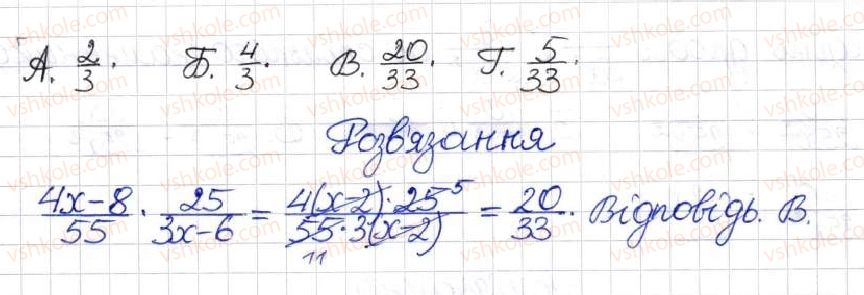 А. 2/3. Б. 4/3. В. 20/33. Г. 5/33.
Розв'язання
4x-8/55 · 25/3x-6 = 4(x-2)·25 5/55·3(x-2) 11 = 20/33. Відповідь. В.